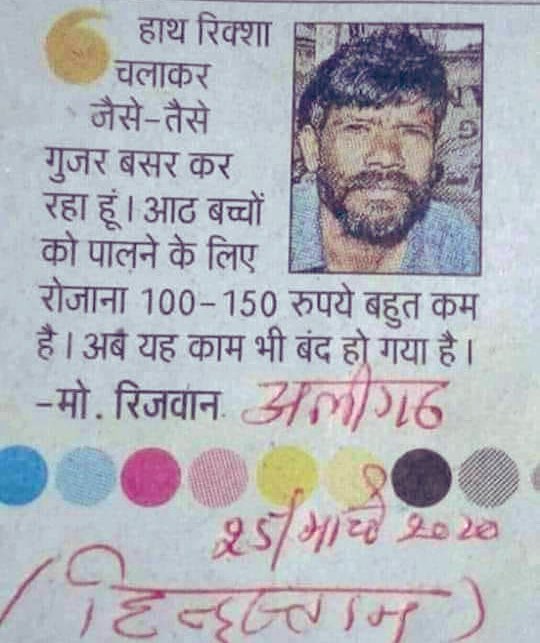 हाथ रिक्शा
चलाकर
जैसे-तैसे
गुजर बसर कर
रहा हूं। आठ बच्चों
को पालने के लिए
रोजाना 100-150 रुपये बहुत कम
है। अब यह काम भी बंद हो गया है।
-मो. रिजवान. अलीगढ
25/मार्च 2020
(हिन्दुस्तान)